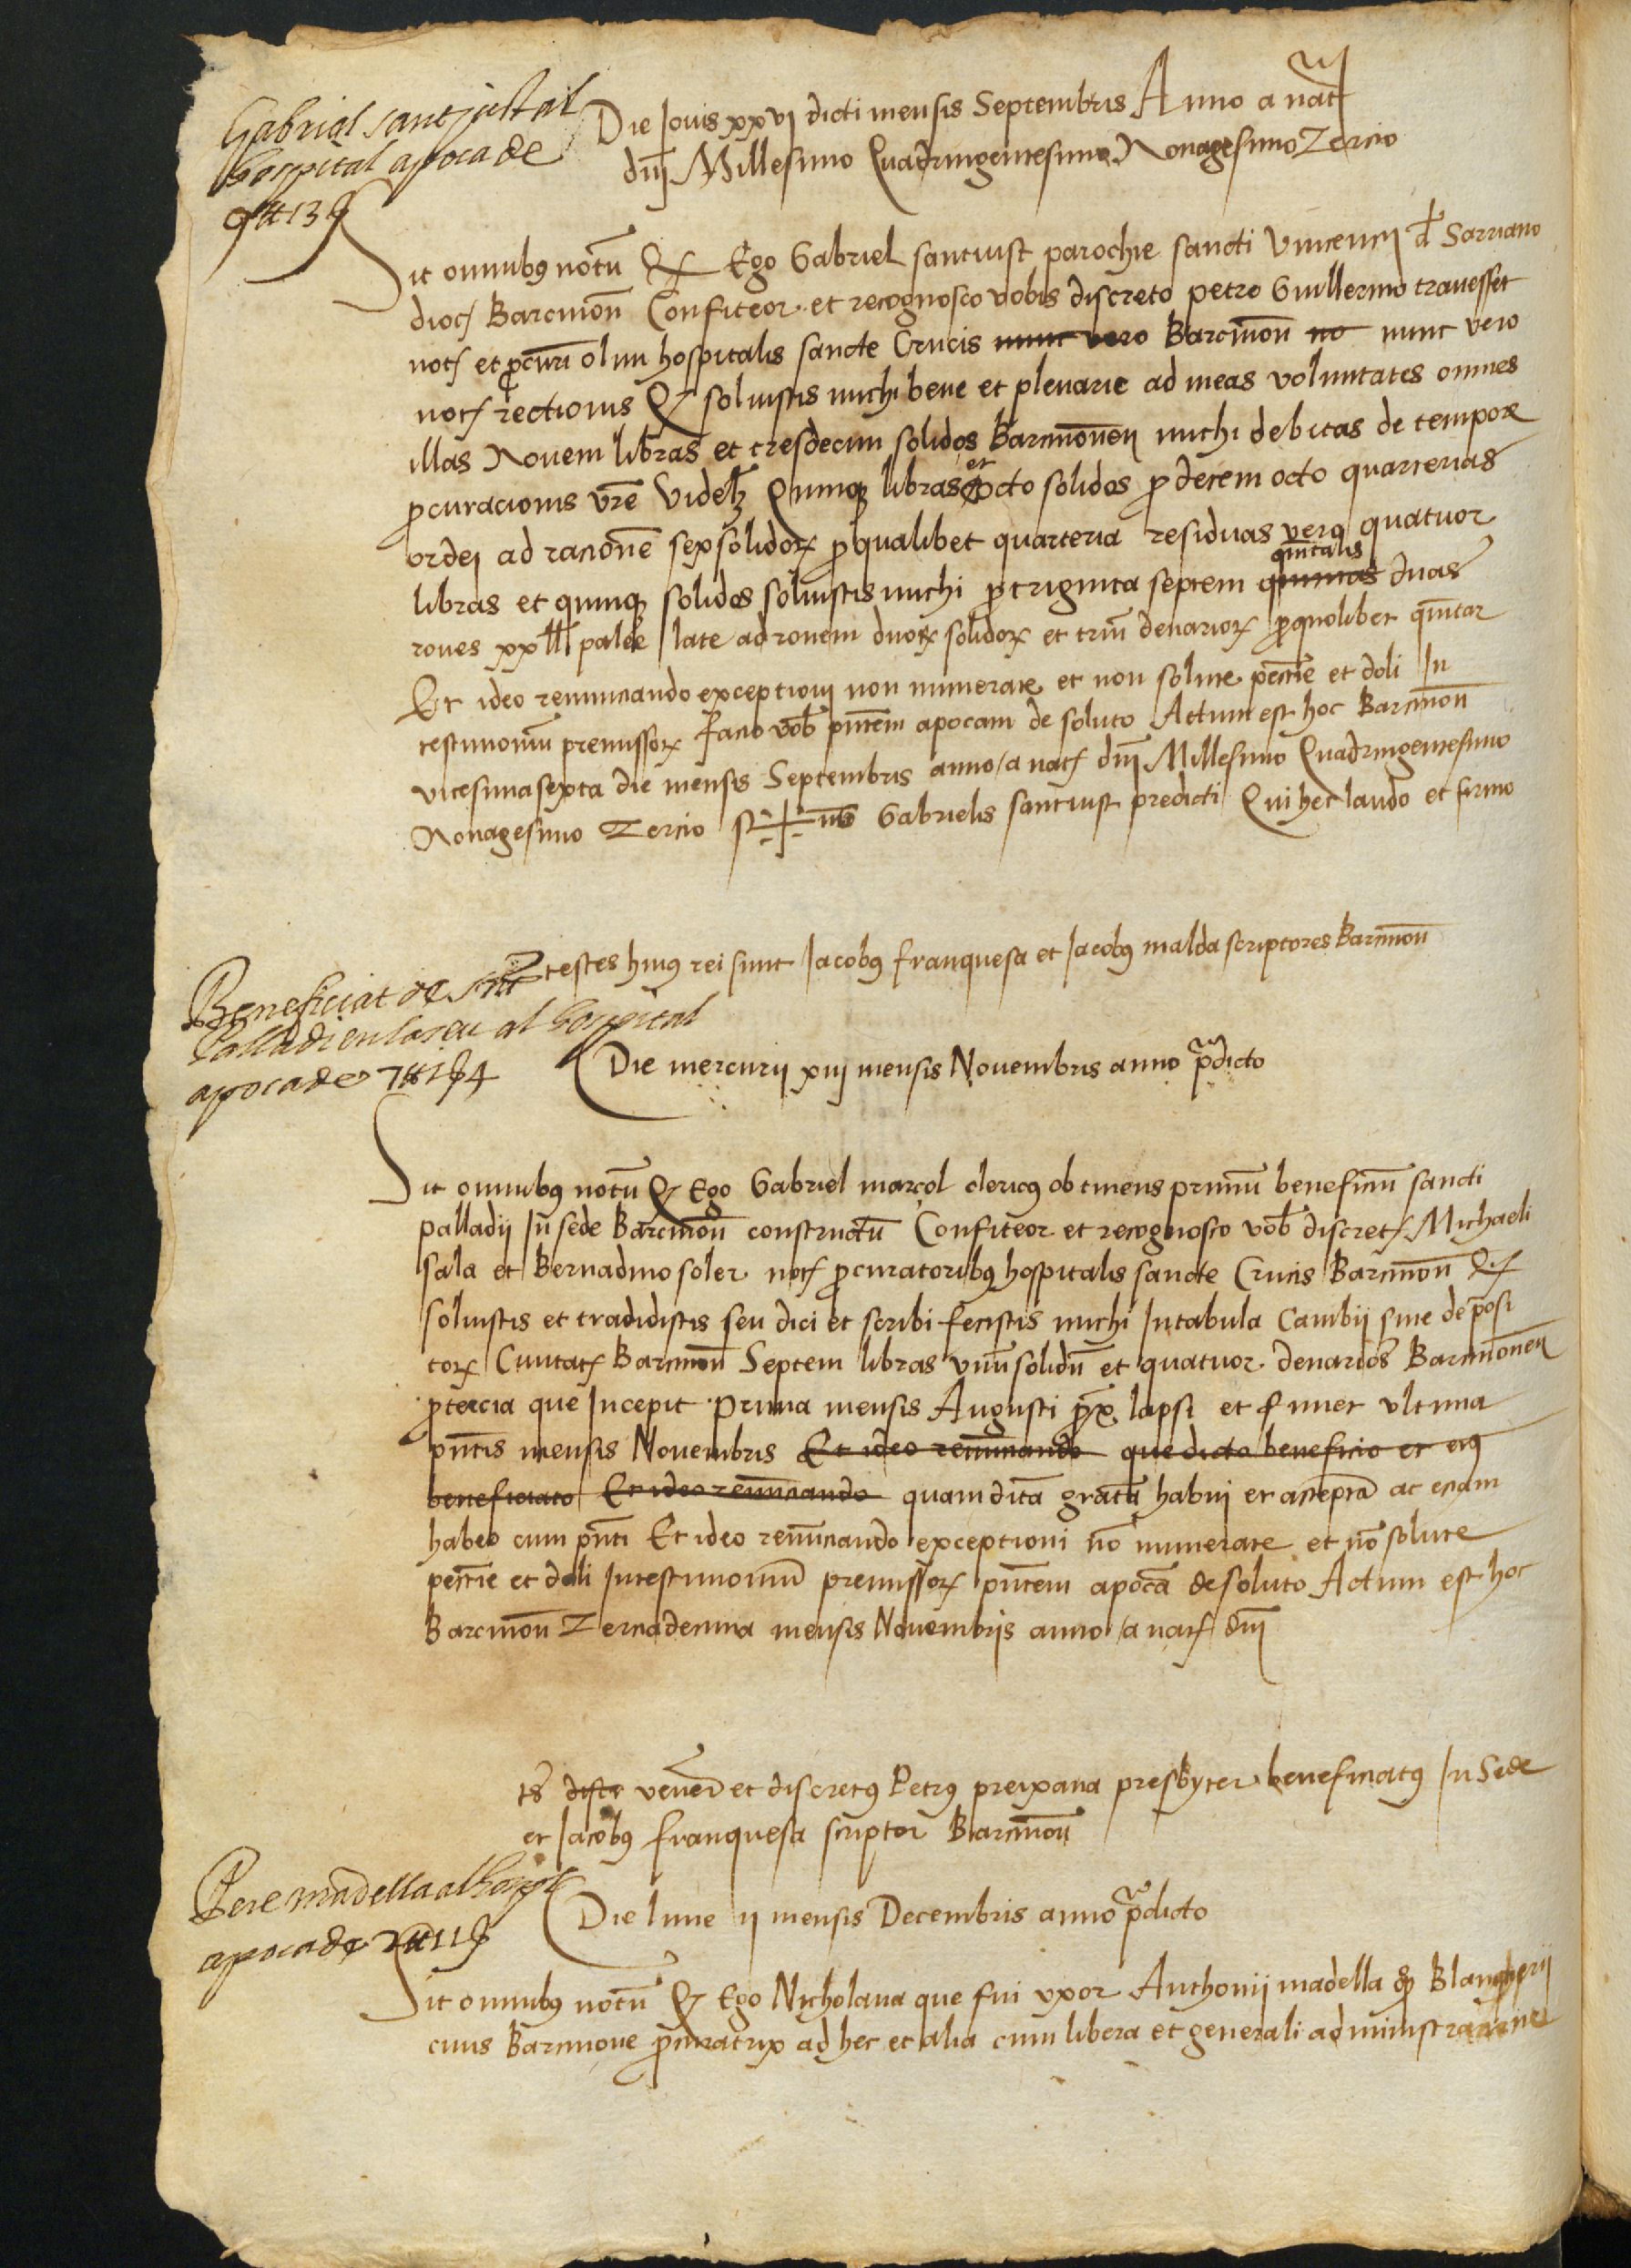 Gabriel santjust al
hospital apoca de
9 tt 13 ſ
Die Jovis xxvj dicti mensis Septembris Anno a nat
dnj Millesimo Quadringentesimo Nonagesimo Tercio
Sit omnibus notu q Ego Gabriel santiust parochie sancti Vincencij d Sarriano
dioc Barcinon Confiteor et recognosco vobis discreto petro Guillermo travesset
not et pcuri olim hospitalis sancte Crucis nunc vero Barcinon no nunc vero
not rectionis q solvistis michi bene et plenarie ad meas voluntates omnes
illas Novem libras et tresdecim solidos Barcinonen michi debitas de tempore
pcuracionis vre Videlz Quinq libras et octo solidos p decem octo quarterias
ordej ad racione sex solidor p qualibet quarteria residuas vero quatuor
libras et quinq solidos solvistis michi p triginta septem quintas quintalis duas
roves xx ll palee late ad ronem duor solidor et triu denarior p quolibet quintar
Et ideo renunciando exceptioni non numerate et non solute pecnie et doli In
testimoniu premissor facio vob pntem apocam de soluto Actum est hoc Barcinon
vicesimasexta die mensis Septembris anno a nat dnj Millesimo Quadringentesimo
Nonagesimo Tercio Sig+num Gabrielis santiust predicti Qui hec laudo et firmo
testes huius rei sunt Jacobus franquesa et Jacobus malda scriptores Barcinon
Beneficiat de Snt
Palladi en la seu al hospital
apoca de 7 tt 1 ſ 4
Die mercurij xiij mensis Novembris anno pdicto
Sit omnibus notu q Ego Gabriel marçol clericus obtinens primu beneficiu sancti
palladij In sede Barcinon constructu Confiteor et recognosco vob discret Michaeli
sala et Bernadino soler not pcuratoribus hospitalis sancte Crucis Barcinon q
solvistis et tradidistis seu dici et scribi fecistis michi In tabula Cambij sive deposi
tor Civitat Barcinon Septem libras unu solidu et quatuor denarios Barcinonen
p tercia que Incepit prima mensis Augusti prox lapsi et finiet ultima
pntis mensis Novembris Et ideo renunciando que dicto beneficio et eius
beneficiato Et ideo renunciando quam dita grata habui et accepta ac eciam
habeo cum pnti Et ideo renunciando exceptioni no numerate et no solute
pecnie et doli In testimoniu premissor pntem apoca de soluto Actum est hoc
Barcinon Terciadecima mensis Novembris anno a nat dnj
ts discr vener et discretus Petrus preixana presbyter beneficiatus In Sede
et Jacobus franquesa scriptor Barcinon
Pere madella al hospl
apoca de 2 tt 11 ſ
Die lune ij mensis Decembris anno pdicto
Sit omnibus notu q Ego Nicholaua que fui uxor Anthonij madella q Blanquerij
civis Barcinone pcuratrix ad hec et alia cum libera et generali administracione